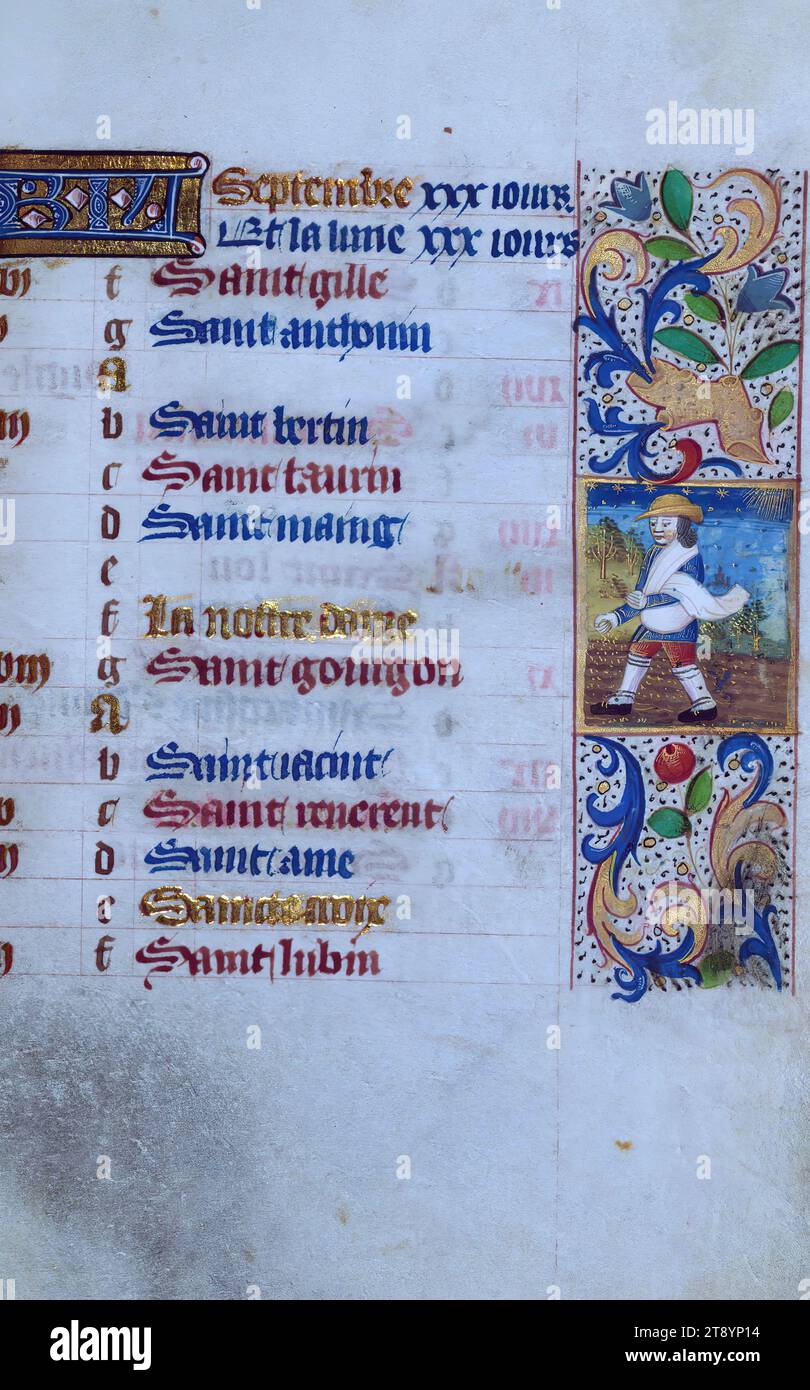 KL Septembre xxx iours.
Et la lune xxx iours
f Saint gille
g Saint anthonin
A
b Saint bertin
c Saint taurin
d Saint maing
e
f La nostre dame
g Saint gouigon
A
b Saint iacint
c Saint reuerent
d Saint ame
e Saincte croix
f Saint lubin
alamy
Image ID: 2T8YP14
www.alamy.com